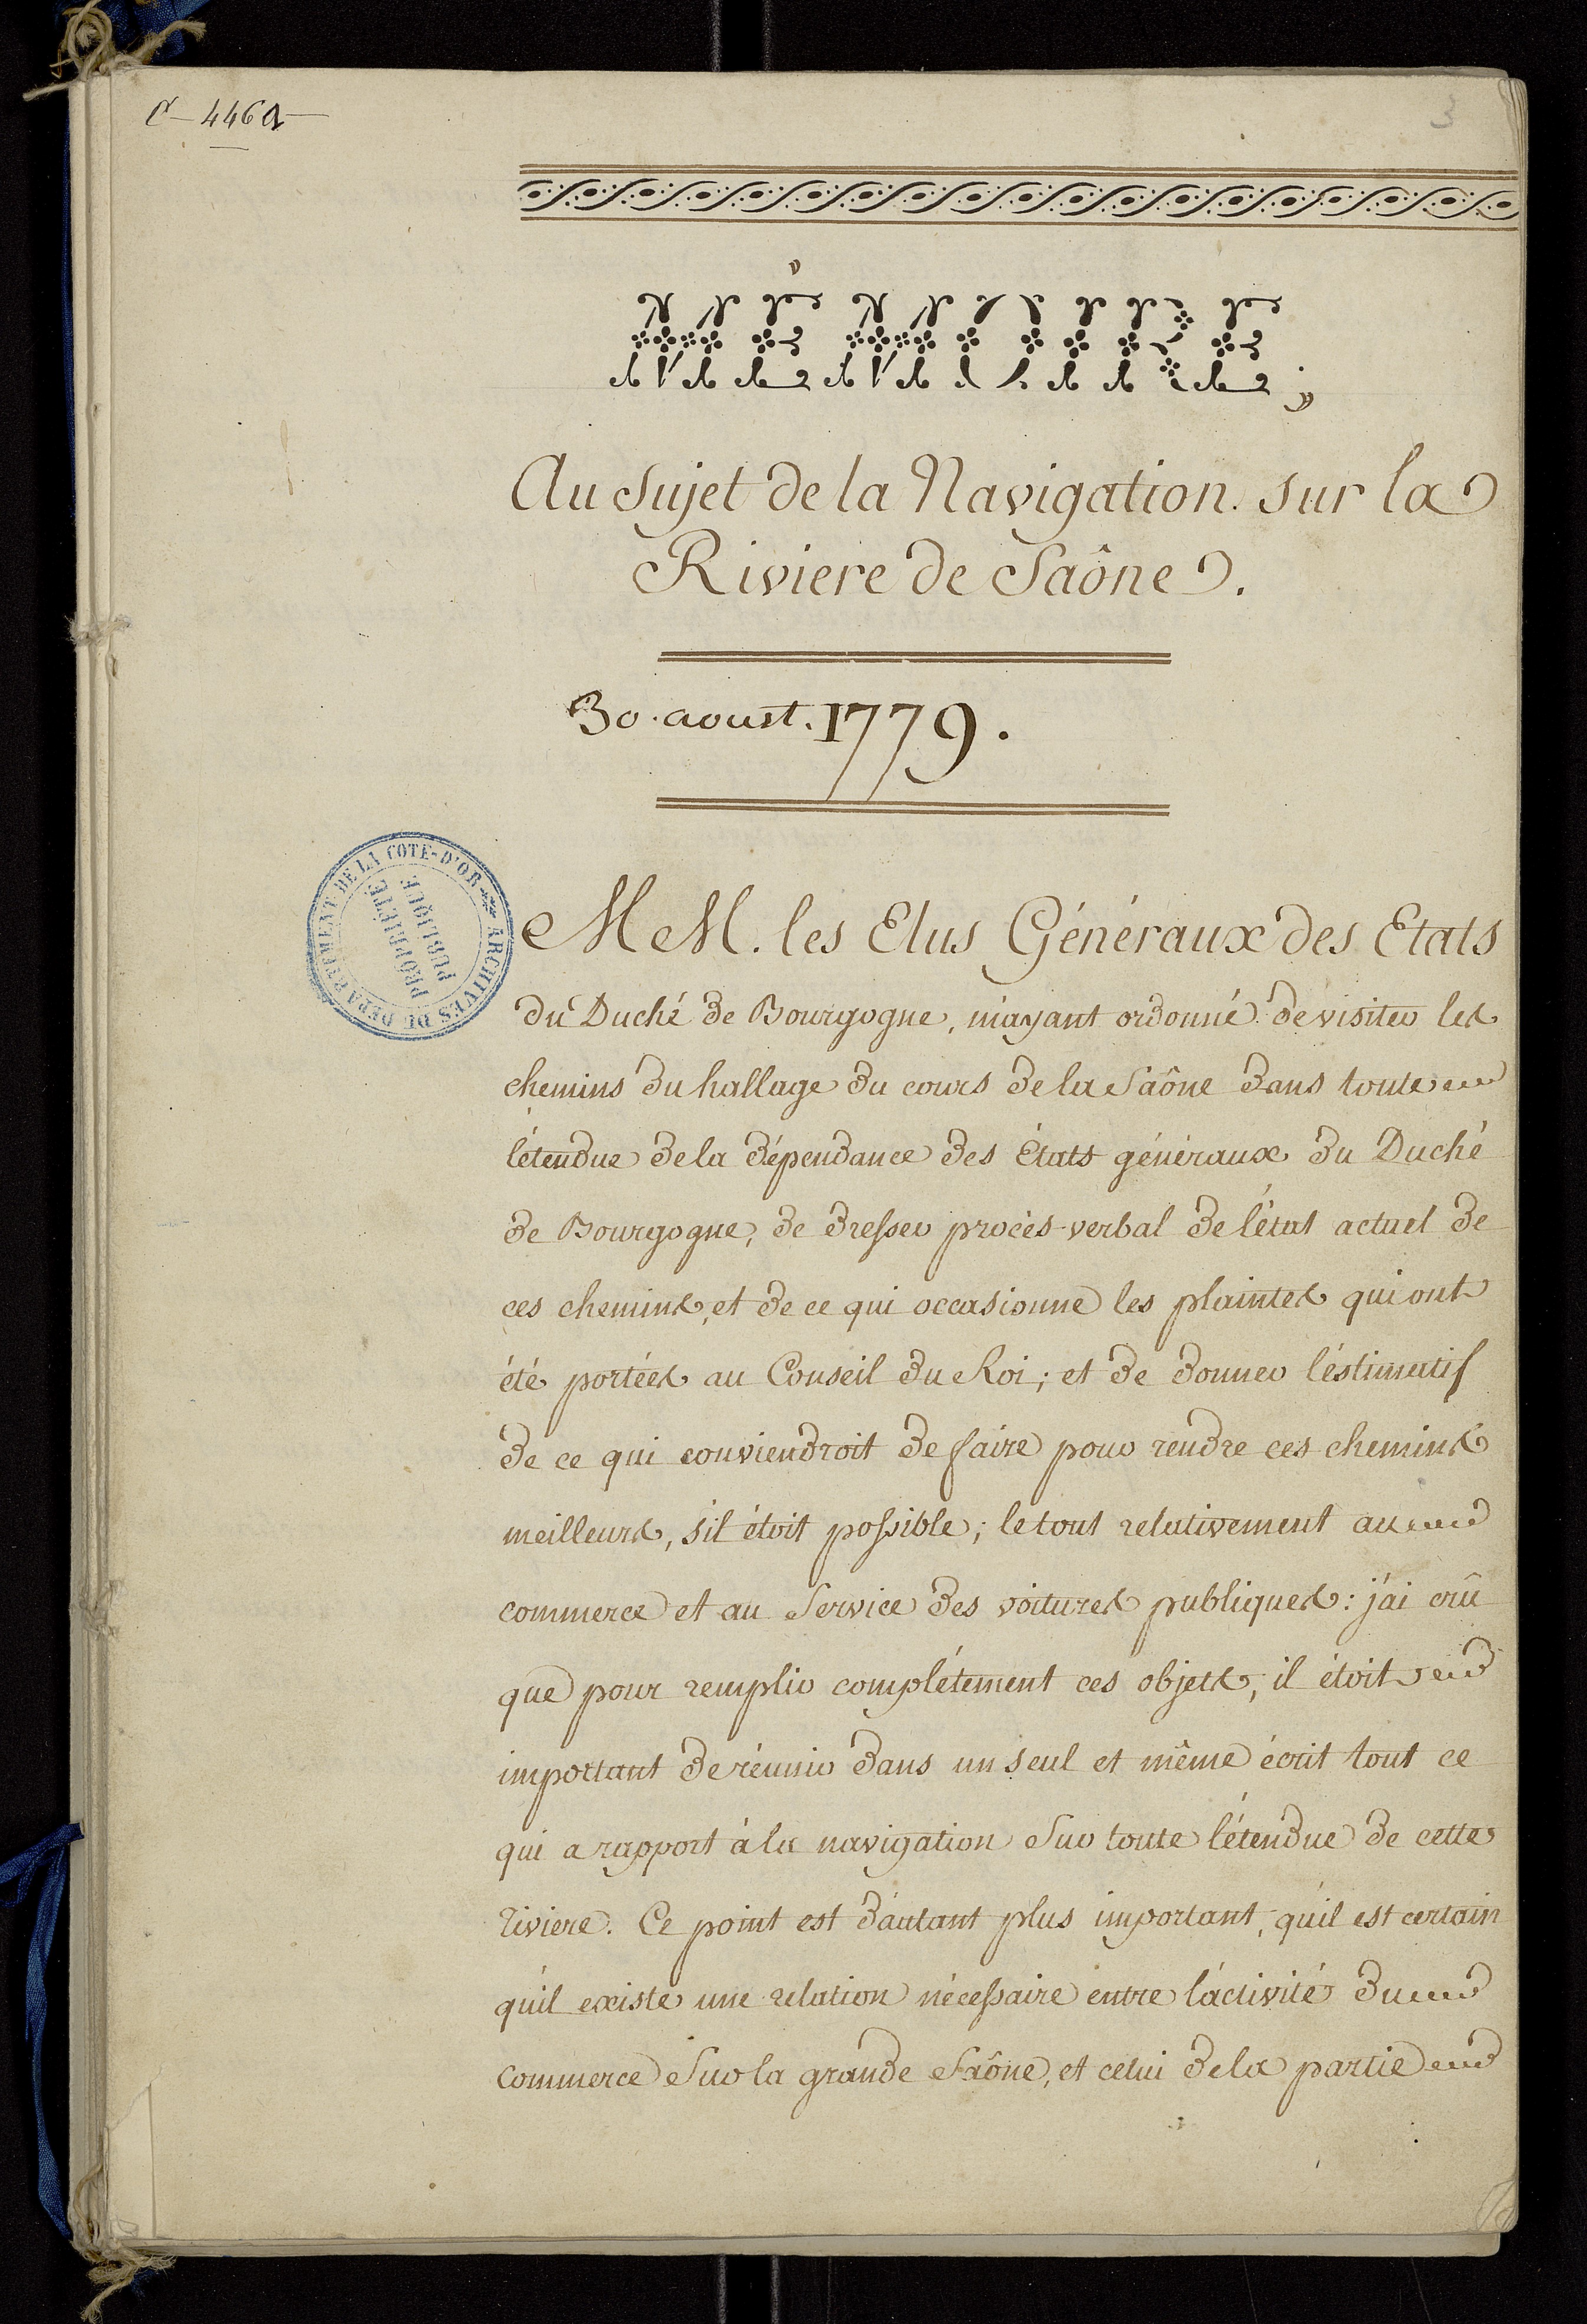 C - 4469
3
MÉMOIRE ;
Au Sujet de la Navigation sur la
Riviere de Saône.
30. aoust. 1779.
ARCHIVES DU DEPARTEMENT DE LA COTE-D'OR
PROPRIÉTÉ
PUBLIQUE
MM. les Elus Généraux des Etats
du Duché de Bourgogne, m'ayant ordonné de visiter les
chemins du hallage du cours de la Saône dans toute
l'étendue de la dépendance des États généraux du Duché
de Bourgogne, de dresser procès-verbal de l'état actuel de
ces chemins, et de ce qui occasionne les plaintes qui ont
été portées au Conseil du Roi; et de donner l'éstimatif
de ce qui conviendroit de faire pour rendre ces chemins
meilleurs, s'il étoit possible; le tout relativement au
commerce et au Service des voitures publiques: j'ai crû
que pour remplir complétement ces objets, il étoit
important de réunir dans un seul et même écrit tout ce
qui a rapport à la navigation Sur toute l'étendue de cette
riviere. Ce point est d'autant plus important, qu'il est certain
qu'il existe une relation nécessaire entre l'activité du
commerce Sur la grande Saône, et celui de la partie